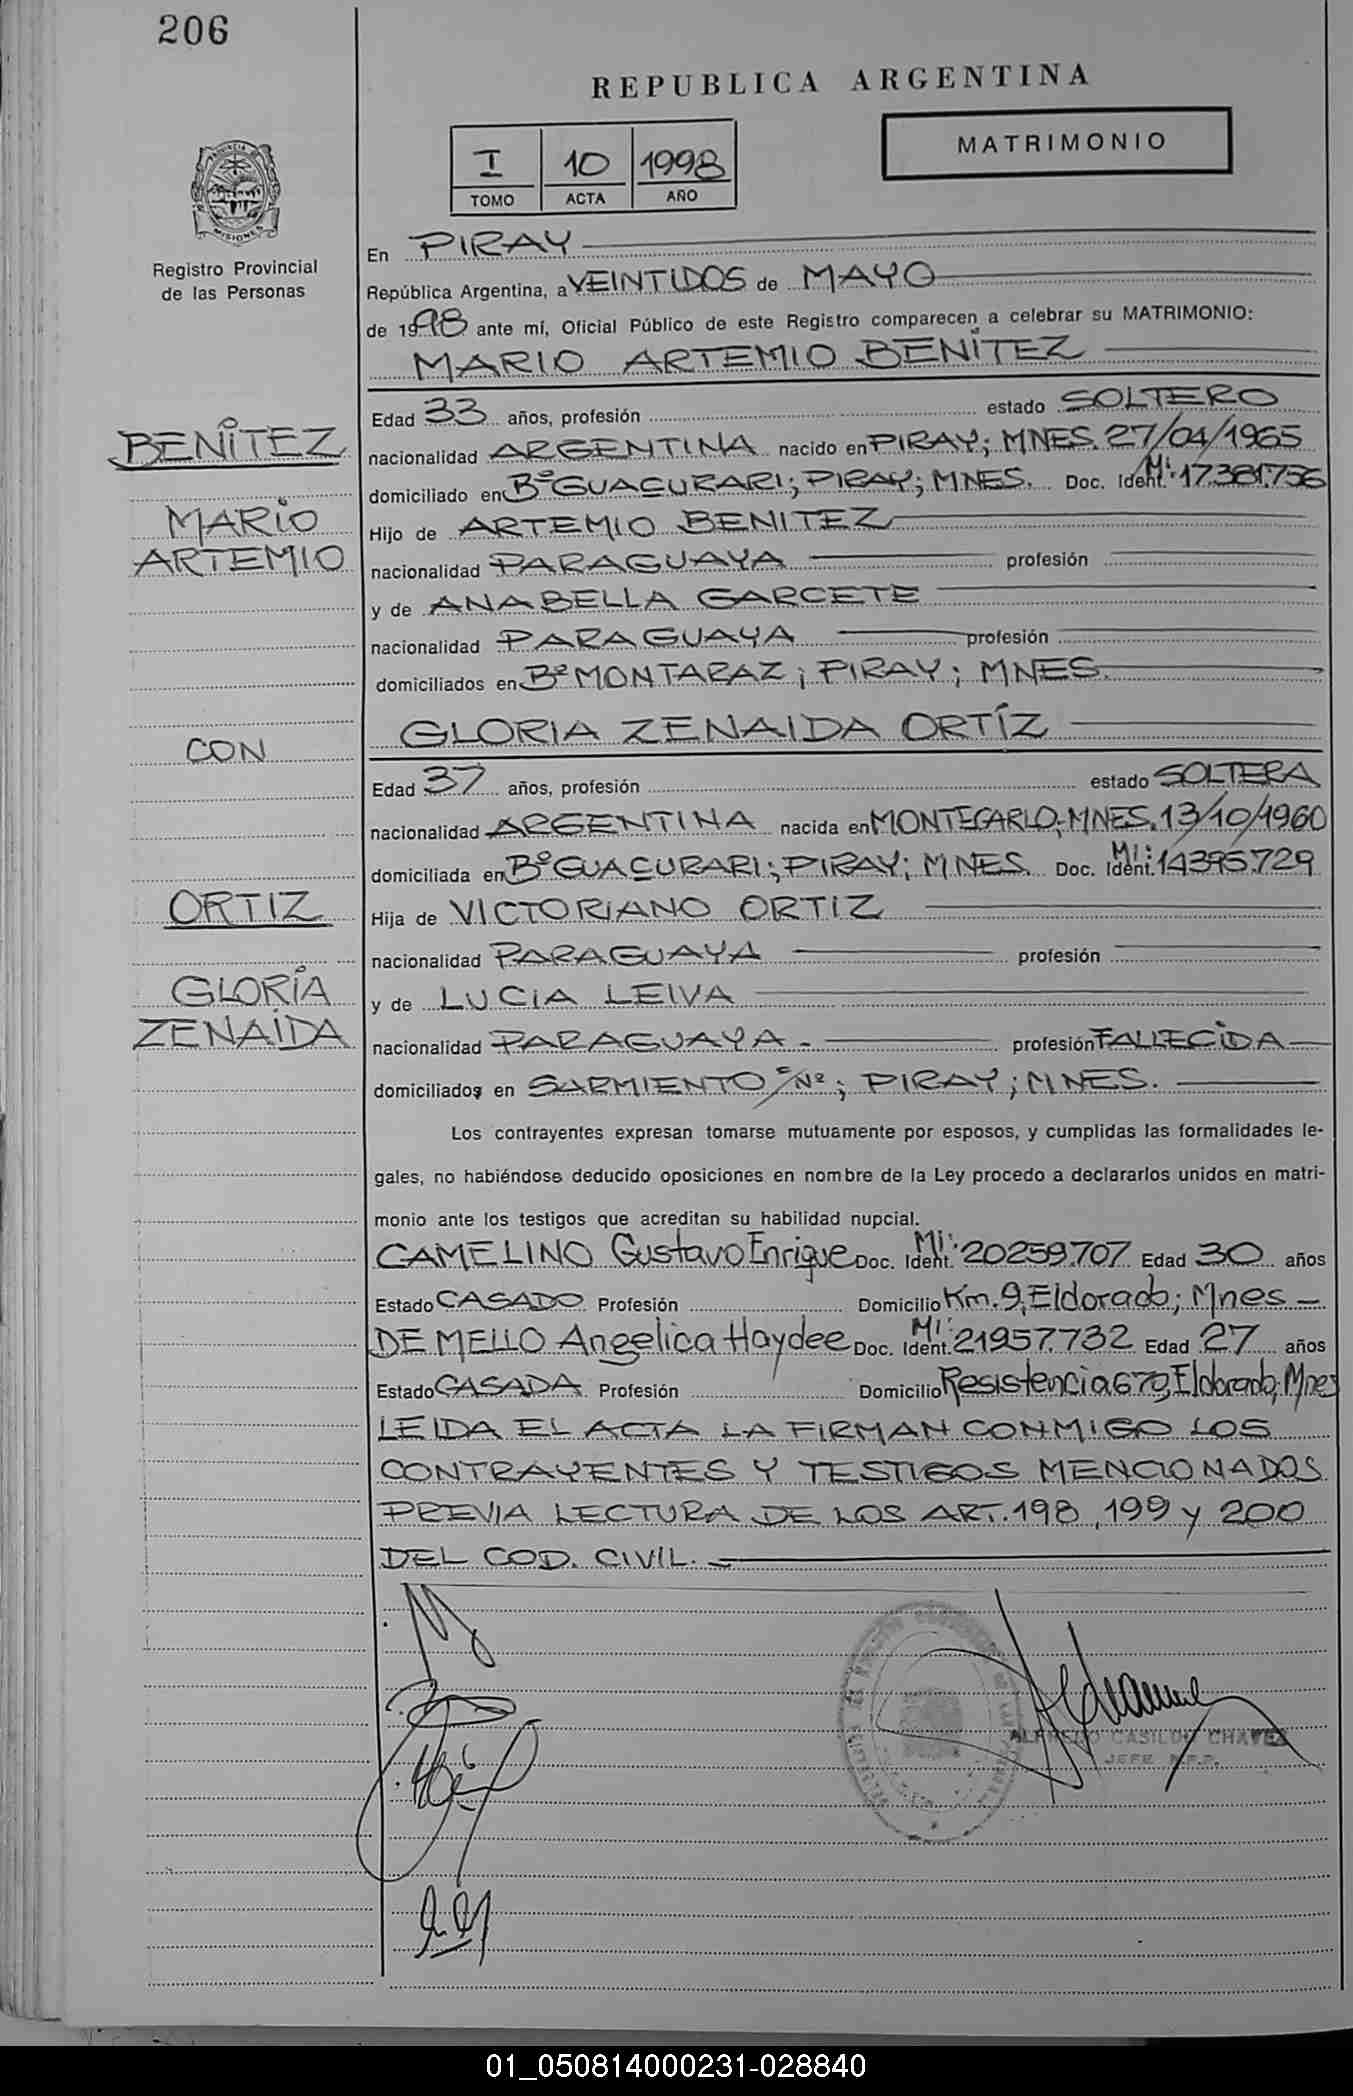 206
REPUBLICA ARGENTINA
I 10 1998
TOMO ACTA AÑO
MATRIMONIO
PROVINCIA DE
MISIONES
Registro Provincial
de las Personas
En PIRAY
República Argentina, a VEINTIDOS de MAYO
de 1998 ante mí, Oficial Público de este Registro comparecen a celebrar su MATRIMONIO:
MARIO ARTEMIO BENÍTEZ
Edad 33 años, profesión estado SOLTERO
BENÍTEZ
nacionalidad ARGENTINA nacido en PIRAY; MNES. 27/04/1965
domiciliado en Bº GUACURARI; PIRAY; MNES. Doc. Ident. MI: 17.381.756
MARIO
Hijo de ARTEMIO BENITEZ
ARTEMIO
nacionalidad PARAGUAYA profesión
y de ANABELLA GARCETE
nacionalidad PARAGUAYA profesión
domiciliados en Bº MONTARAZ; PIRAY; MNES.
CON
GLORIA ZENAIDA ORTÍZ
Edad 37 años, profesión estado SOLTERA
nacionalidad ARGENTINA nacida en MONTECARLO; MNES. 13/10/1960
domiciliada en Bº GUACURARI; PIRAY; MNES. Doc. Ident. MI: 14.395.729
ORTIZ
Hija de VICTORIANO ORTIZ
nacionalidad PARAGUAYA profesión
GLORIA
y de LUCIA LEIVA
ZENAIDA
nacionalidad PARAGUAYA.- profesión FALLECIDA
domiciliados en SARMIENTO S/Nº; PIRAY; MNES.
Los contrayentes expresan tomarse mutuamente por esposos, y cumplidas las formalidades le-
gales, no habiéndose deducido oposiciones en nombre de la Ley procedo a declararlos unidos en matri-
monio ante los testigos que acreditan su habilidad nupcial.
CAMELINO Gustavo Enrique Doc. Ident. MI: 20259.707 Edad 30 años
Estado CASADO Profesión Domicilio Km. 9, Eldorado; Mnes -
DE MELLO Angelica Haydee Doc. Ident. MI: 21957.732 Edad 27 años
Estado CASADA Profesión Domicilio Resistencia 679, Eldorado; Mnes
LEIDA EL ACTA LA FIRMAN CONMIGO LOS
CONTRAYENTES Y TESTIGOS MENCIONADOS
PREVIA LECTURA DE LOS ART. 198, 199 y 200
DEL COD. CIVIL.-
ALFREDO CASILDO CHAVEZ
JEFE
01_050814000231-028840